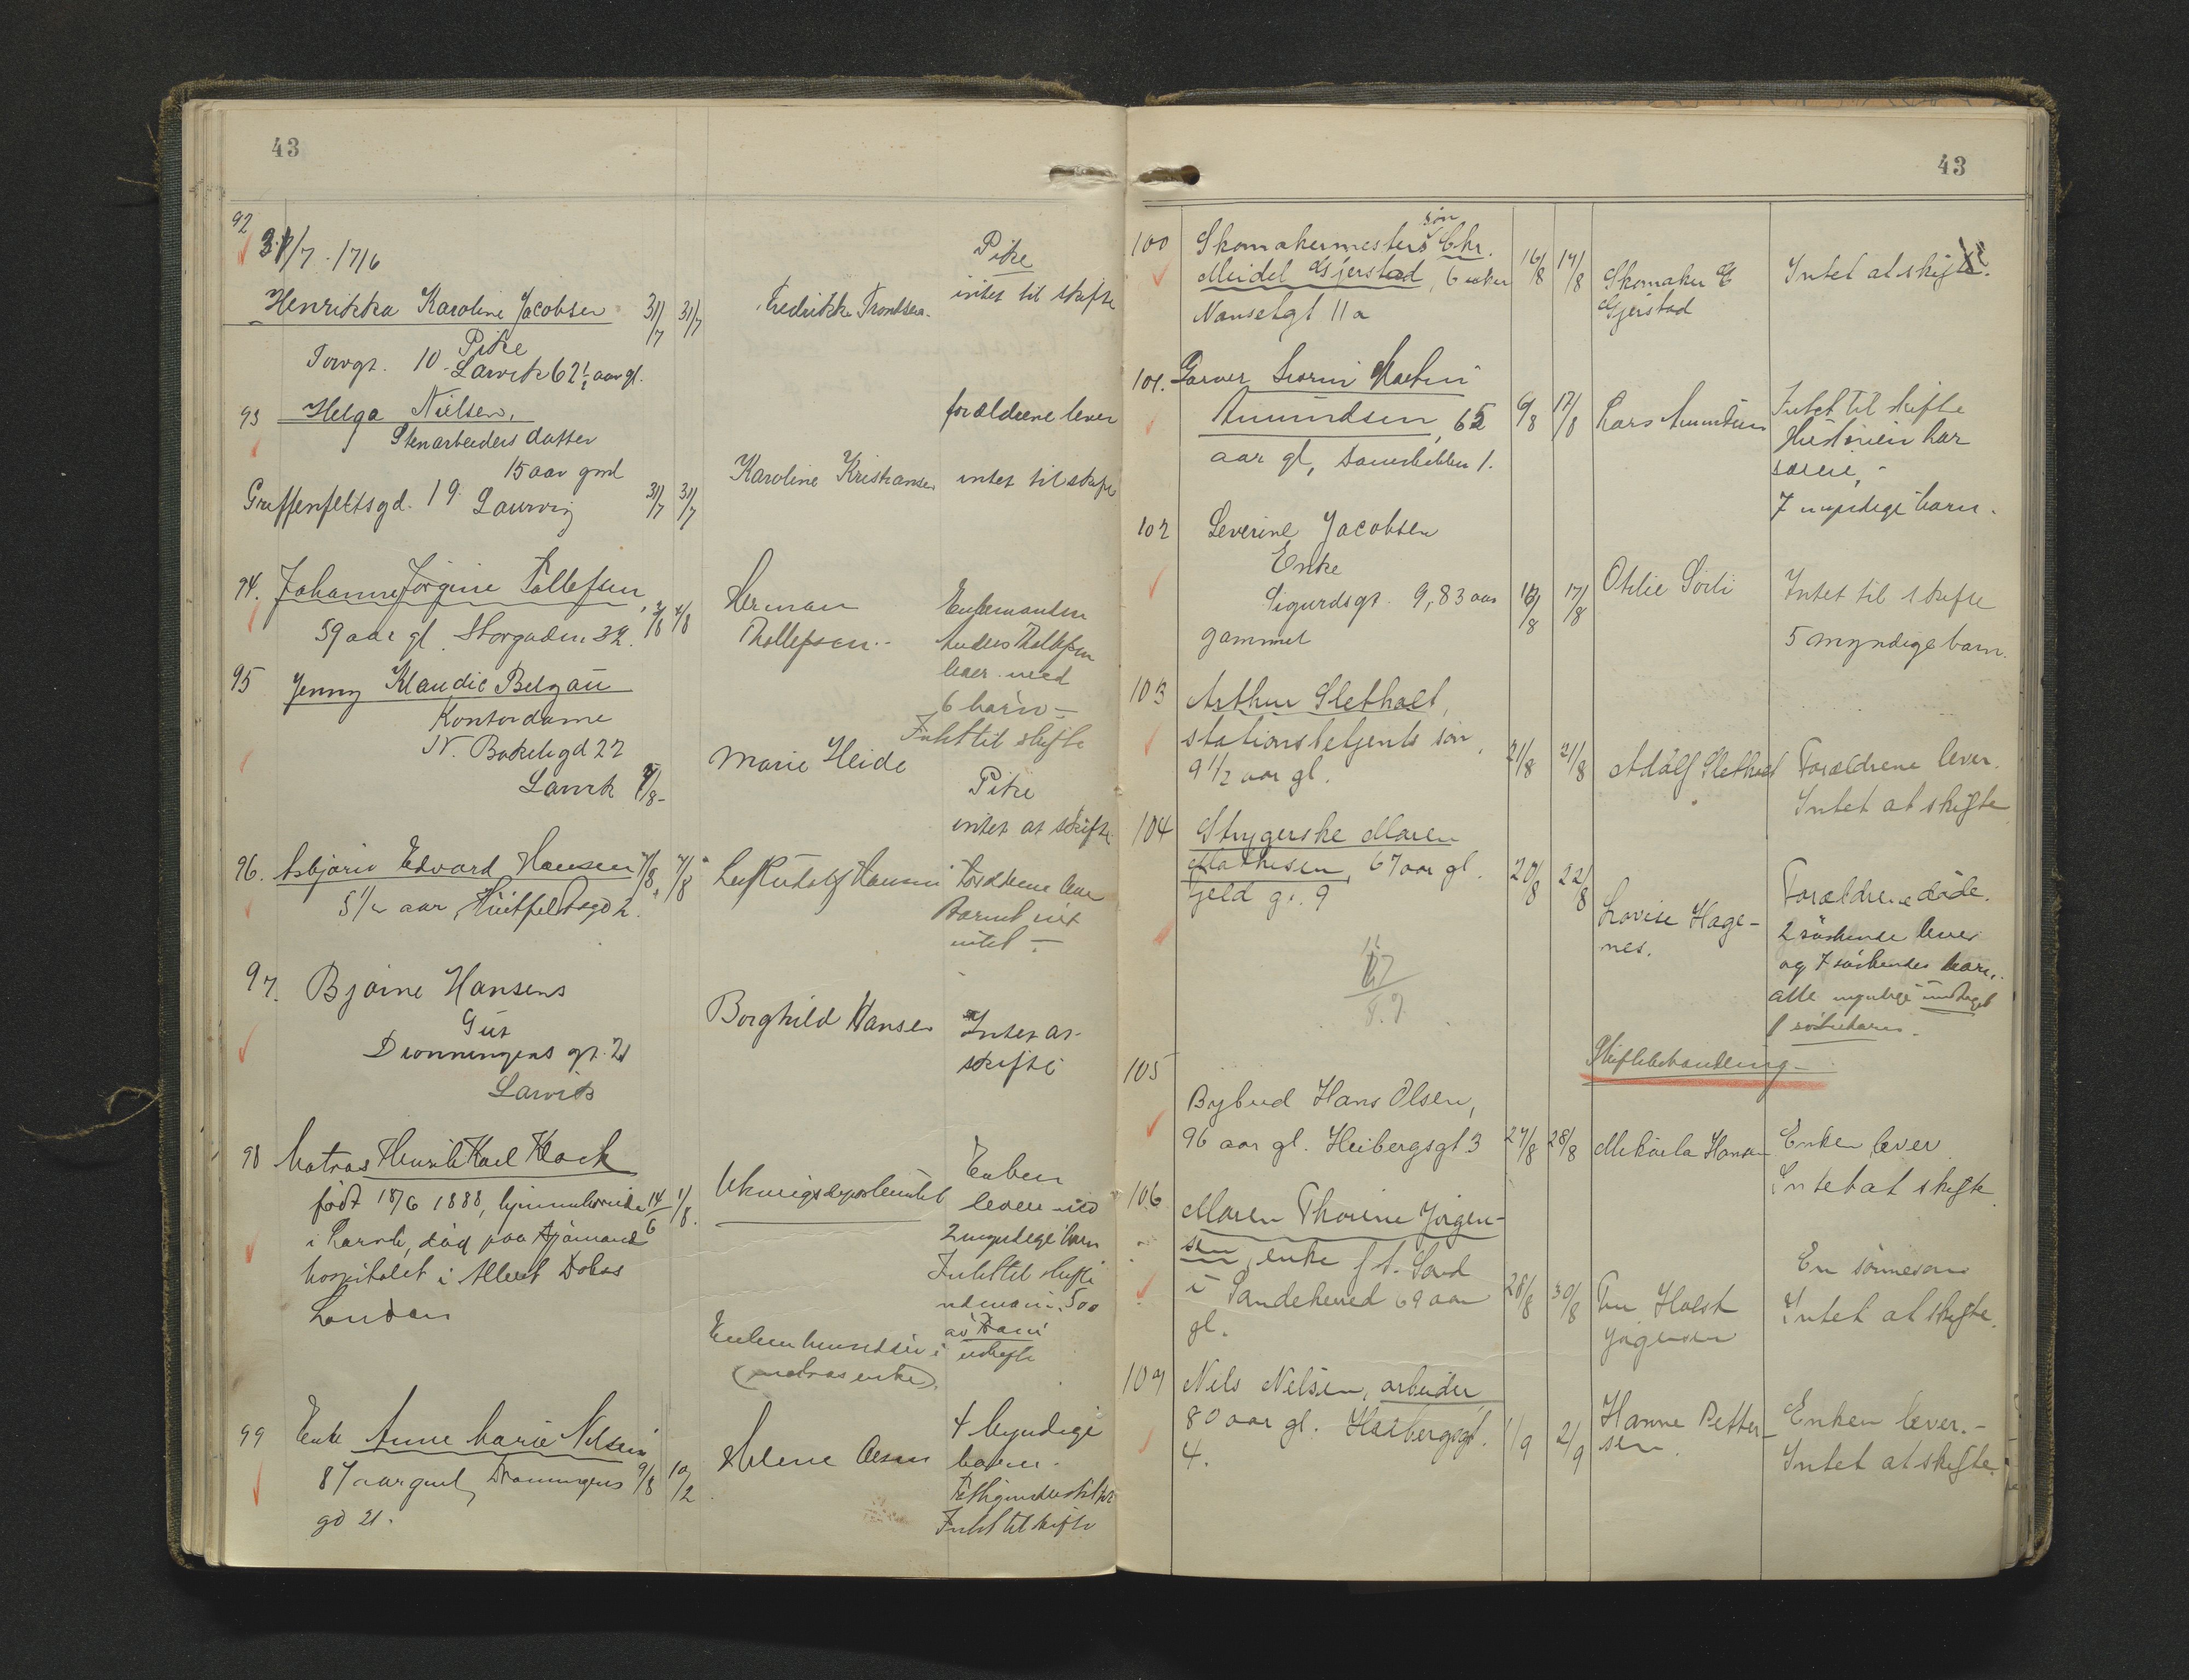 43
92
31/7 - 1716
Pike
Henrikka Karoline Jacobsen 31/7 31/7 Fredrikke Trondsen. intet til skifte
Pike
Torvgt. 10. Larvik 62 1/2 aar gl.
93 Helga Nielsen, forældrene lever
Stenarbeiders datter
15 aar gml
Karoline Kristiansen intet til skifte
Griffenfeldtsgd. 19. Laurvig 31/7 31/7
94. Johanne Jörgine Tollefsen, 2/8 4/8 Herman Enkemanden
59 aar gl. Storgaden 32. Thollefsen Anders Thollefsen
lever med
6 barn -
Intet til skifte
95 Jenny Klaudie Belgau
Kontordame
N. Bøkeligd 22 Marie Heide
Larvik 7/8- Pike
intet at skifte
96. Asbjörn Edvard Hansen 7/8 7/8 Leif Rudolf Hansen Forældrene lever
5 1/2 aar, Huitfeldtsgd 2. Barnet eiet
intet -
97. Bjarne Hansens
Gut Borghild Hansen Intet at
Dronningens gt. 21 skifte
Larvik
98 Matros Henrik Karl Klock Enken
født 18/6 1888, hjemmehørende 14/6 1/8. Utenrigsdepartementet lever med
i Larvik, død paa Sjömands 2 umyndige barn
hospitalet i Albert Doks Intet til skifte
London
Enken hensidder i uskifte
(matros enke).
99 Enke Anne Marie Nilsen 4 Myndige
87 aar gml, Dronningens 9/8 10/2 Helene Olsen barn.
gd 21. Intet til skifte
43
100 Skomakermesters søn Chr.
Meidel Gjerstad, 6 uker 16/8 17/8 Skomaker G Intet at skifte.
Nansetgt 11a Gjerstad
101. Garver Lorin Martin
Amundsen, 65 6/8 17/8 Lars Amundsen Intet til skifte
aar gl,
7 myndige barn.
102 Severine Jacobsen
Enke
Sigurdsgt. 9, 83 aar 16/8 17/8 Otilie Sörli Intet til skifte
gammel 5 myndige barn.
103 Arthur Sletholt,
stationsbetjents søn, 21/8 21/8 Adolf Sletholt Forældrene lever.
9 1/2 aar gl. Intet at skifte
104 Strygerske Maren
Mathisen, 67 aar gl. 20/8 22/8 Forældrene døde.
Jeld gt. 9 Lovise Hage- 2 søskende lever
nes. og 7 søskendes barn,
alle myndige undtagt
1 søskendebarn.
Skiftebehandling -
105
Bybud Hans Olsen,
96 aar gl. Heibergsgt 3 27/8 28/8 Mikaela Hansen Enken lever
Intet at skifte
106 Maren Thorine Jörgen-
sen, enke f t. Sand En sønnesøn
i Sandeherred 69 aar 28/8 30/8 Fru Holst Intet at skifte.
gl. Jörgensen
107 Nils Nilsen, arbeider Hanne Petter- Enken lever. -
80 aar gl. Heibergsgt. 1/9 2/9 sen. Intet at skifte.
4.